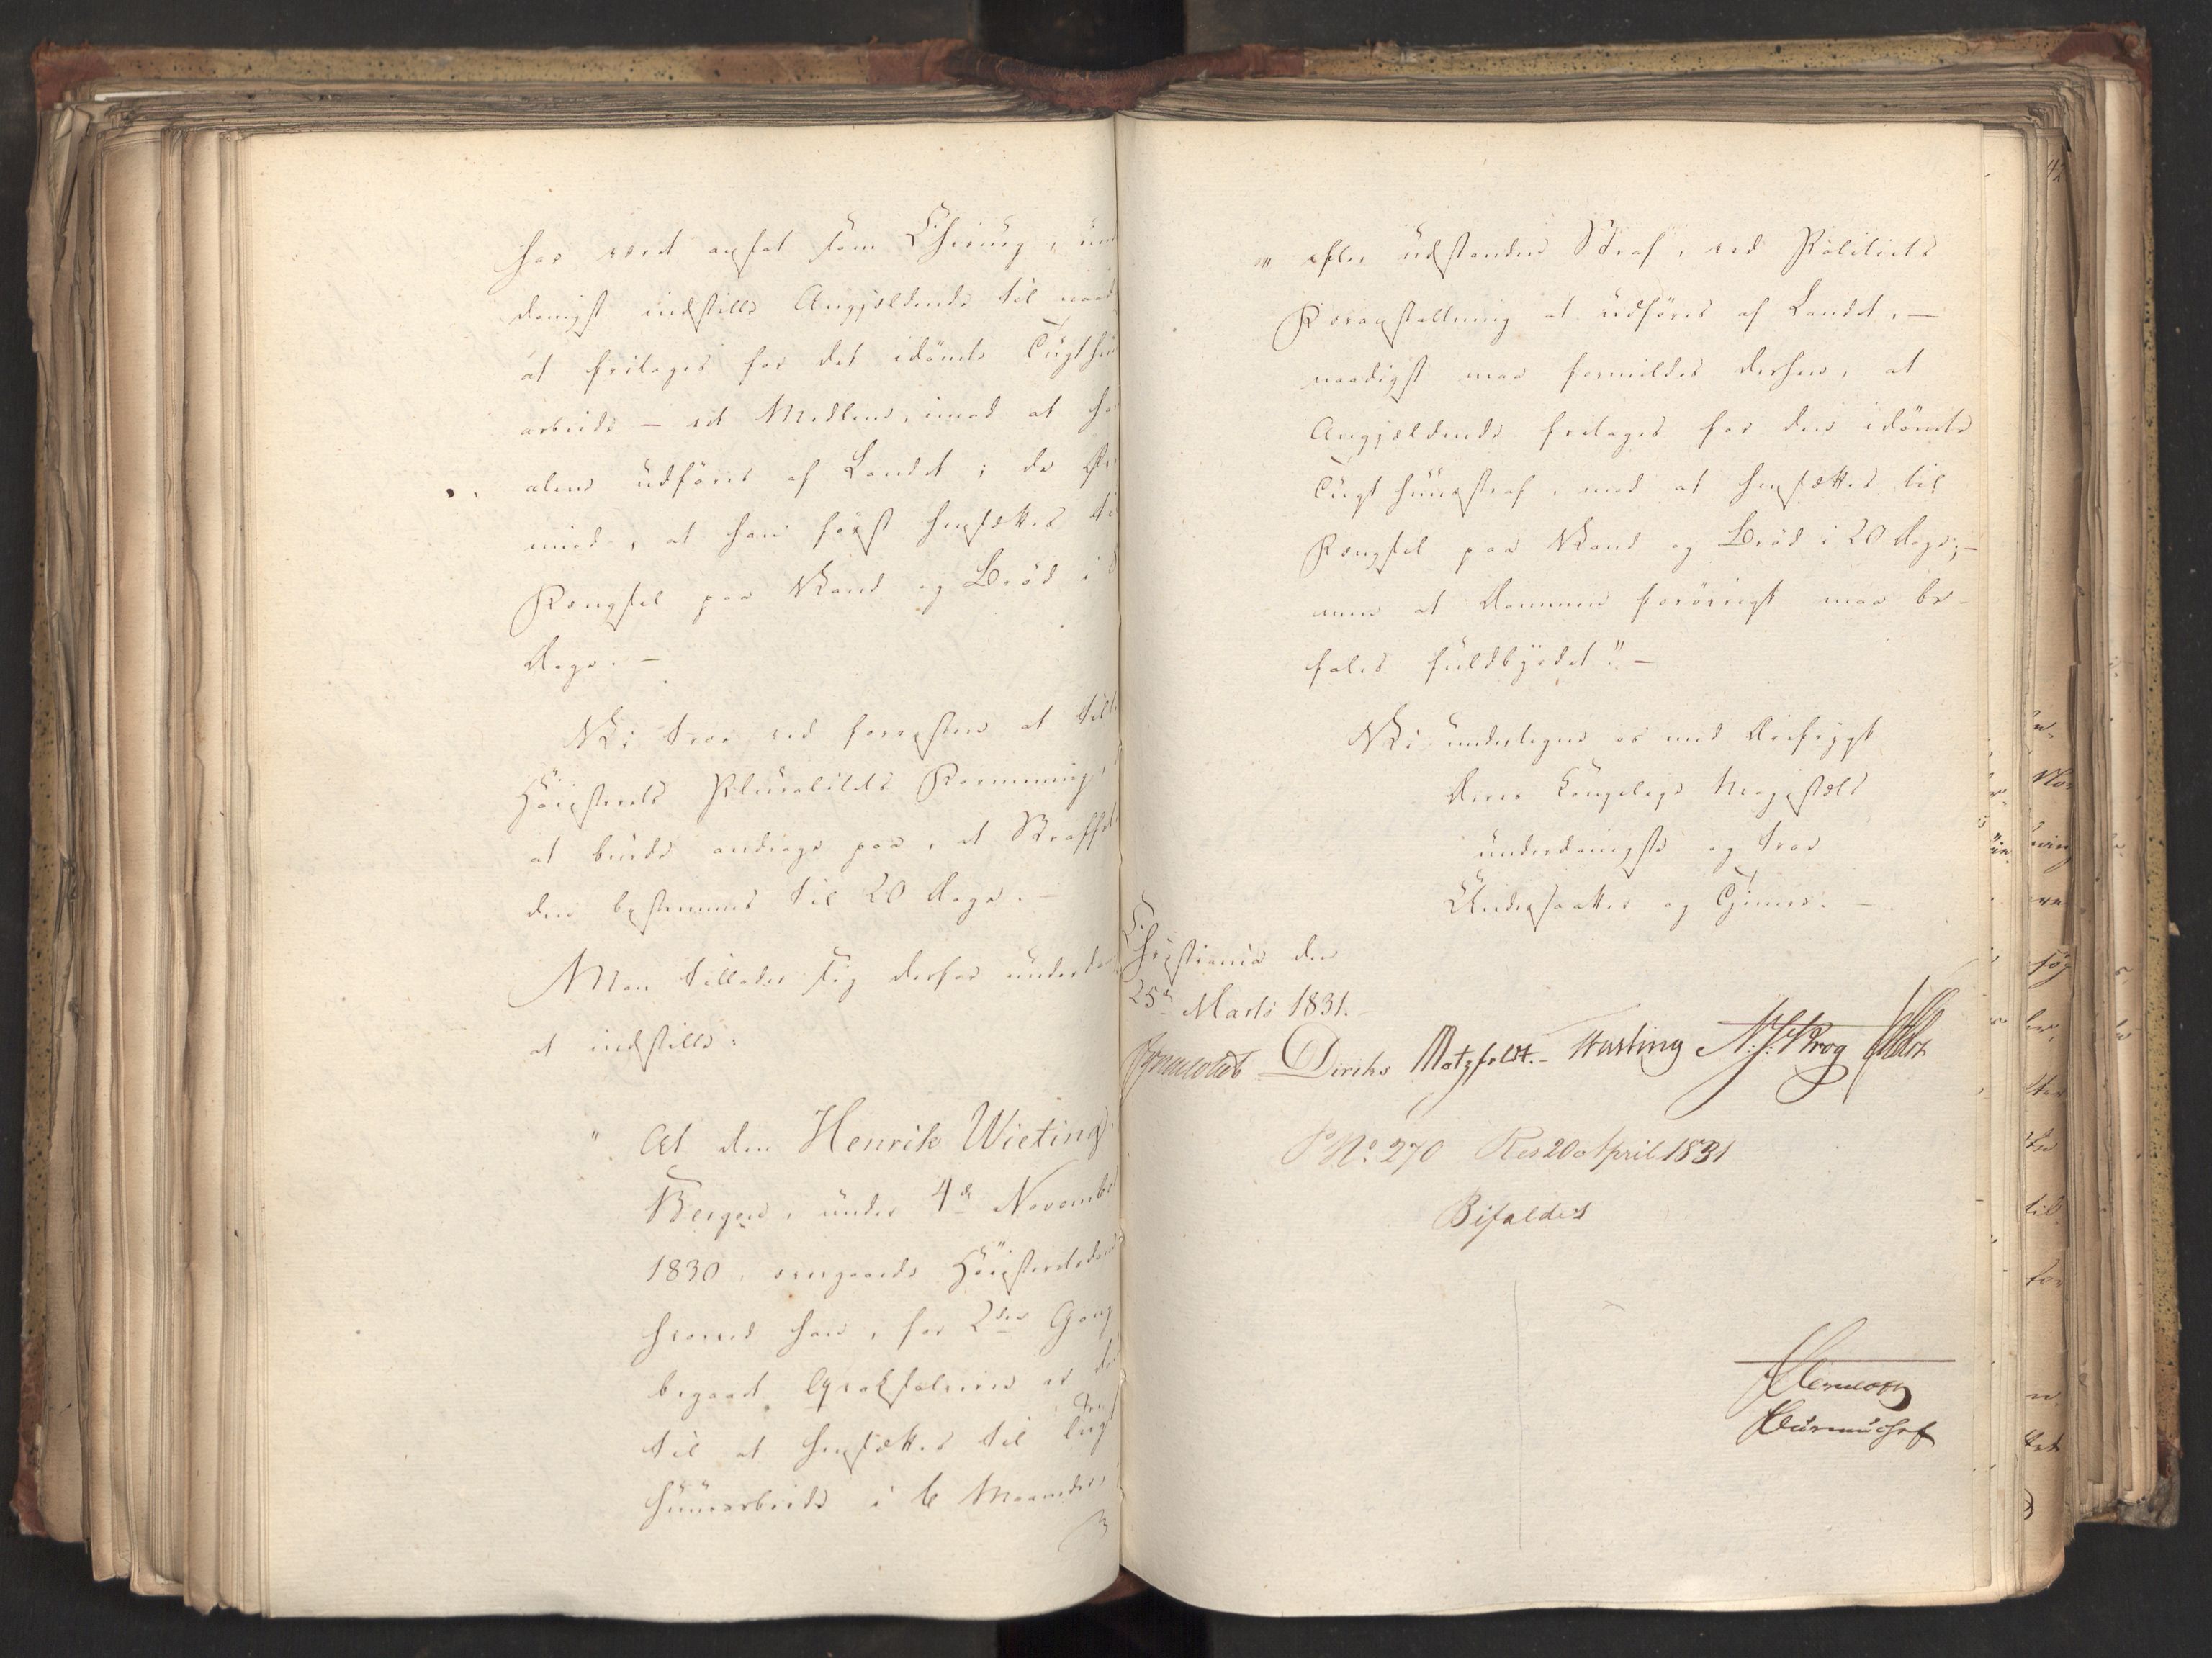 har været ansat som Chirurg, un
danigst indstille Angjældende til naad
at fritages for det idömte Tugthu
arbeide – et Medlem, imod at ha
alene udföres af Landet; de
imod, at han först hensættes ti
Fængsel paa Vand og Bröd i
Dage. –
Vi troe ved forresten at
Höiesterets Pluralitets Formening,
at burde andrage paa, at Straffeti
den bestemmes til 20 Dage. –
Man tillader sig derfor underda
at indstille:
" At den Henrik Wieting
Bergen, under 4de Novemb
1830, overgaaede Höiesteretsdom
hvorved han, for 2den Gang
begaaet Qvaksalverie er dö
til at hensættes til Tugt
huusarbeide i 6 Maaneder,
"' efter udstanden Straf, ved Politiets
Foranstaltning at udföres af Landet, –
naadigst maa formildes derhen, at
Angjældende fritages for den idömte
Tugthuusstraf, mod at hensættes til
Fængsel paa Vand og Bröd i 20 Dage; –
men at Dommen forövrigt maa be-
fales fuldbyrdet". –
Vi undertegne os med Ærefrygt
Deres Kongelige Majestæts
underdanigste og troe
Undersaatter og Tjenere. –
Christiania den
25de Marts 1831.
Diriks Motzfeldt. – Vasling N: J: Krog
P No. 270 Res 20 April 1831
Bifaldes
Duermuchoff